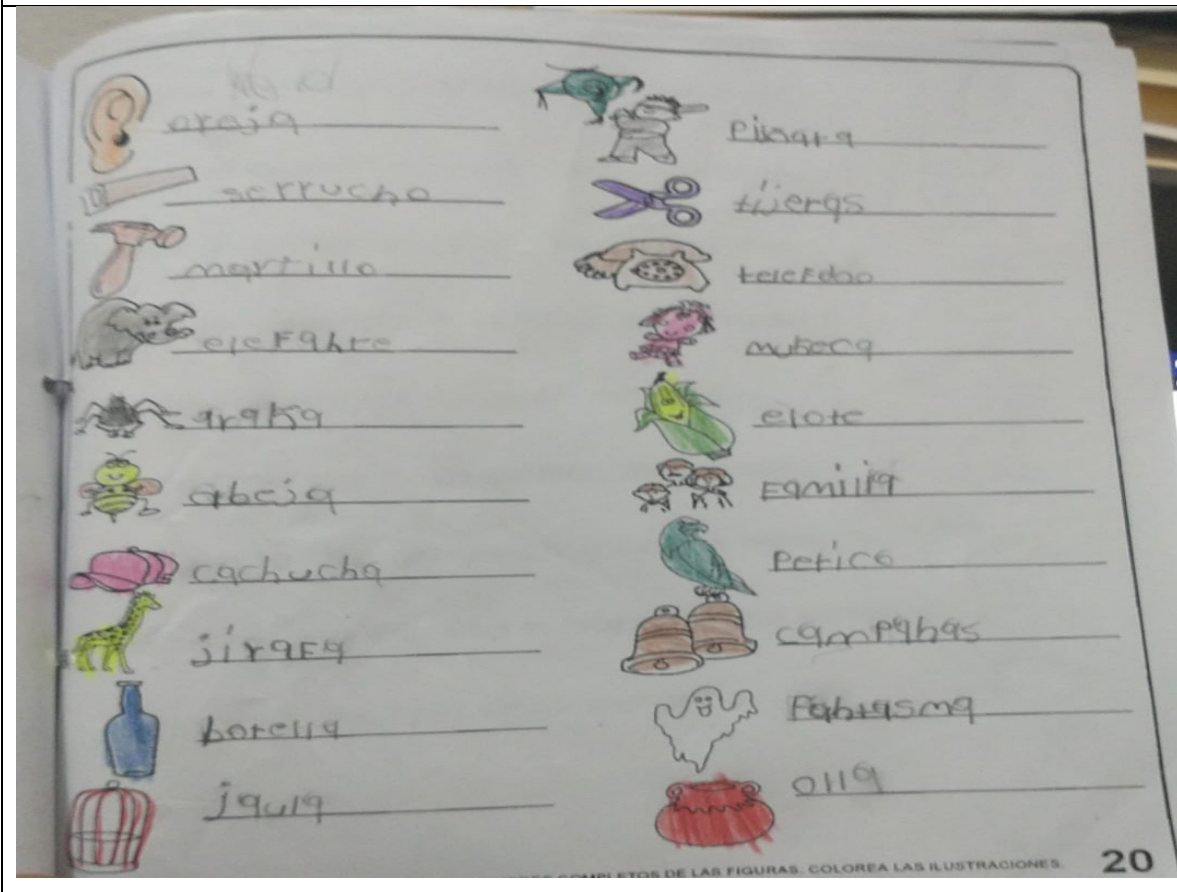 oreja
serrucho
martillo
eleFahte
araña
abeja
cachucha
jiraFa
botella
jaula
Piñata
tijeras
muñeca
elote
Familia
Perico
camPahas
Fahtasma
olla
COMPLETOS DE LAS FIGURAS. COLOREA LAS ILUSTRACIONES.
20